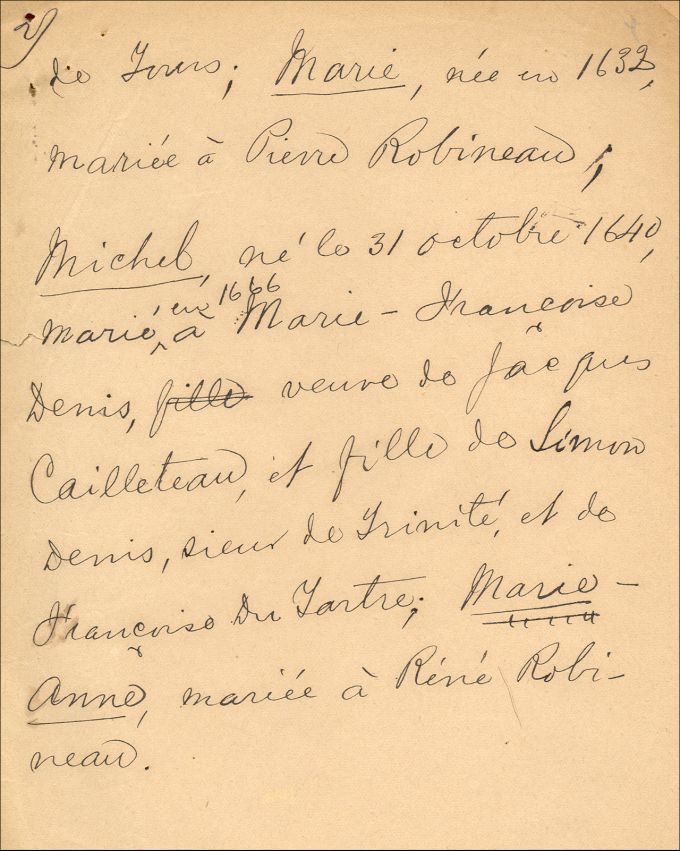 2)
de Tours; Marie, née en 1632,
mariée à Pierre Robineau;
Michel, né le 31 octobre 1640,
en 1666
marié, à Marie-Françoise
Denis, fille veuve de Jacques
Cailleteau, et fille de Simon
Denis, sieur de Trinité, et de
Françoise Du Tartre; Marie-
Anne, mariée à Réné Robi-
neau.